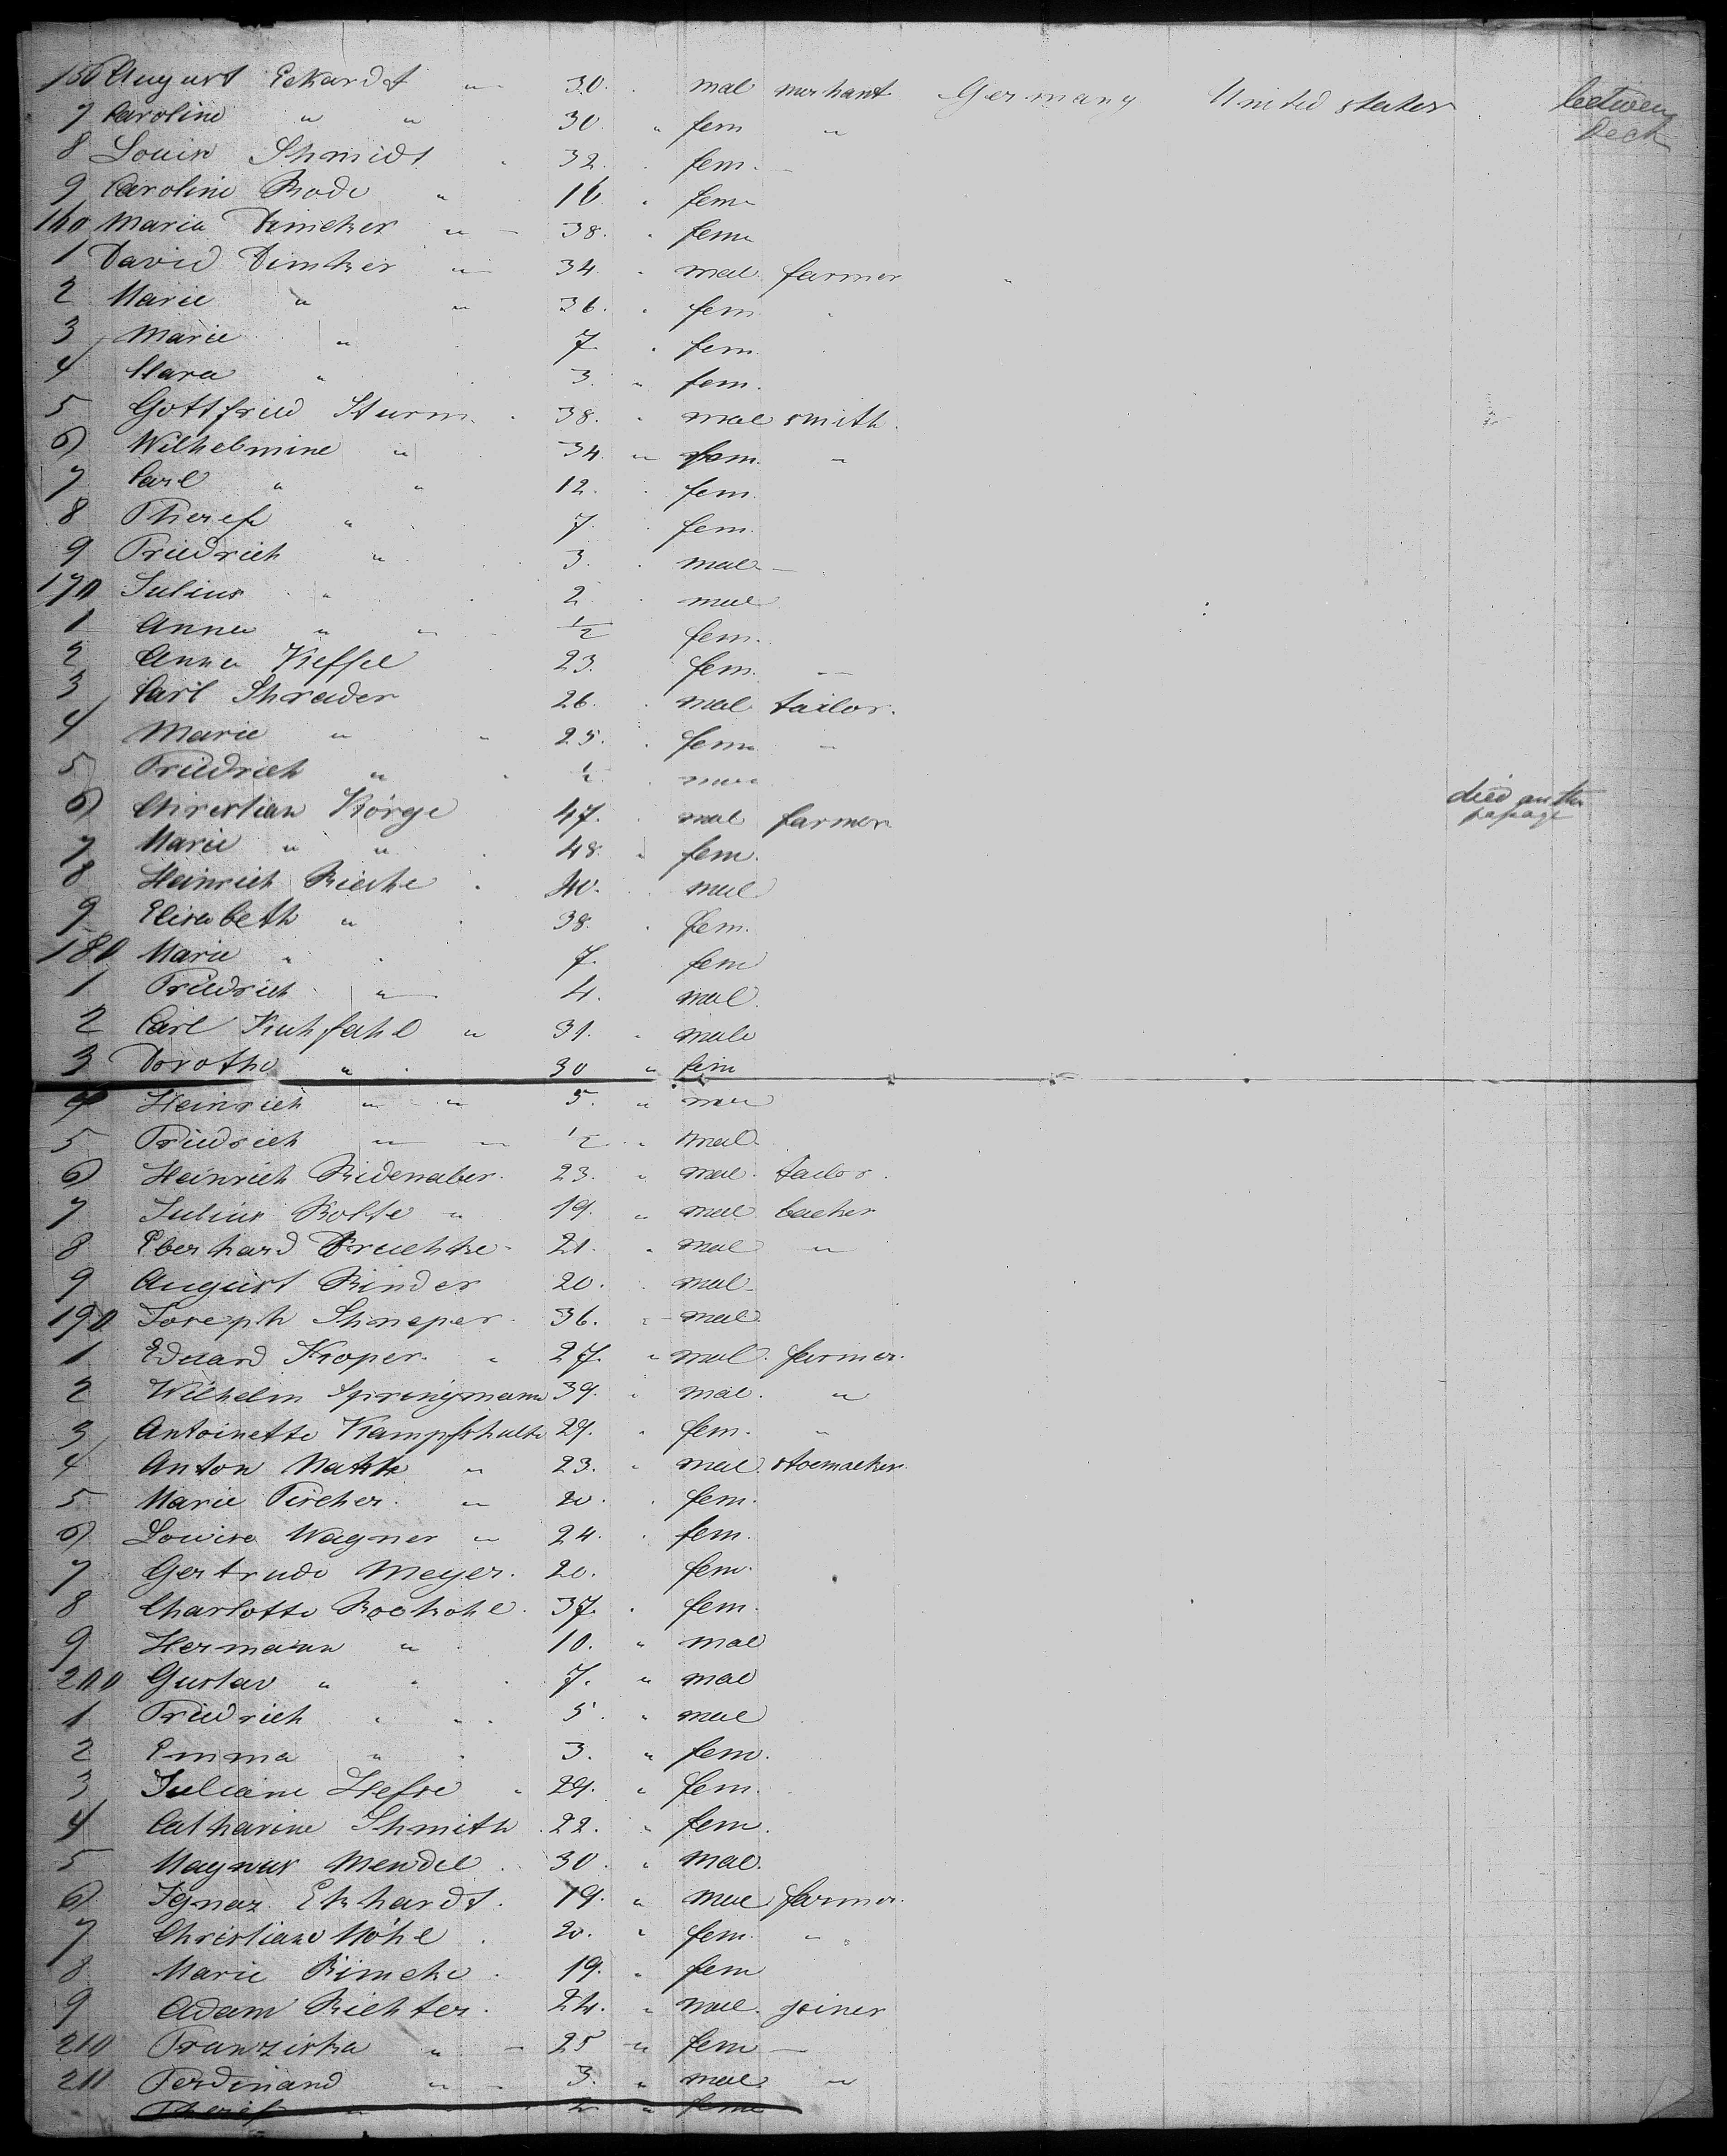 156 August Eckardt " 30. mal merchant Germany United states between
7 Caroline " " 30 " fem " Deck
8 Louis Shmidt 32. fem.
9 Caroline Bode " 16 " fem
160 Maria Dimcker " 38. " fem
1 David Dimker " 34. " mal farmer
2 Marie " " 36. " fem
3 Marie " 7. " fem.
4 Clara " 3. " fem.
5 Gottfried Sturm. 38. " mal smith.
6 Wilhelmine " 34. " fem. "
7 Carl " " 12. fem.
8 Therese " 7. fem.
9 Friedrich " 3. mal
170 Julius " 2 mal
1 Anna " " 1/2 fem.
2 Anna Kessel 23. fem.
3 Carl Shrader 26. mal tailor.
4 Marie " " 25. fem "
5 Friedrich " 1/2 mal died on the
6 Christian Körge 47. mal farmer passage
7 Marie " " 48. " fem.
8 Heinrich 40. mal
9 Elisabeth " 38. fem.
180 Marie " 7. fem
1 Friedrich " 4. mal.
2 Carl Kuhfahl " 31. " male
3 Dorothe " 30 " fem
4 Heinrich " " 5. " mal
5 Friedrich " " 1/2 " mal
6 Heinrich 23. " mal. tailor.
7 Julius Bolte " 19. " mal backer
8 Eberhard 21. " mal "
9 August Binder 20. mal
190 Joseph Shneper 36. " mal
1 Eduard Kroper " 27. " mal. farmer.
2 Wilhelm Springmann 39. " mal. "
3 Antoinette Kampfshulte 29. " fem. "
4 Anton " 23. " mal. stoemacker
5 Marie Fircher. " 20. fem.
6 Lowise Wagner " 24. fem.
7 Gertrude Meyer. 20. fem.
8 Charlotte Rockohl. 37. fem.
9 Hermann " 10. " mal
200 Gustav " 7. " mal
1 Friedrich " " 5. " mal
2 Emma " 3. " fem.
3 Juliane Hesse " 29. " fem.
4 Catharine Shmith. 22. " fem.
5 Magnus Mendel 30. " mal.
6 Ignaz Ekhardt. 19. " mal farmer.
7 Christiane Möhl 20. " fem. "
8 Marie Rimcke 19. " fem
9 Adam Richter. 24. " mal. joiner
210 Franziska " 25 " fem
211 Ferdinand " 3. " mal. "
Therese " 2 " fem